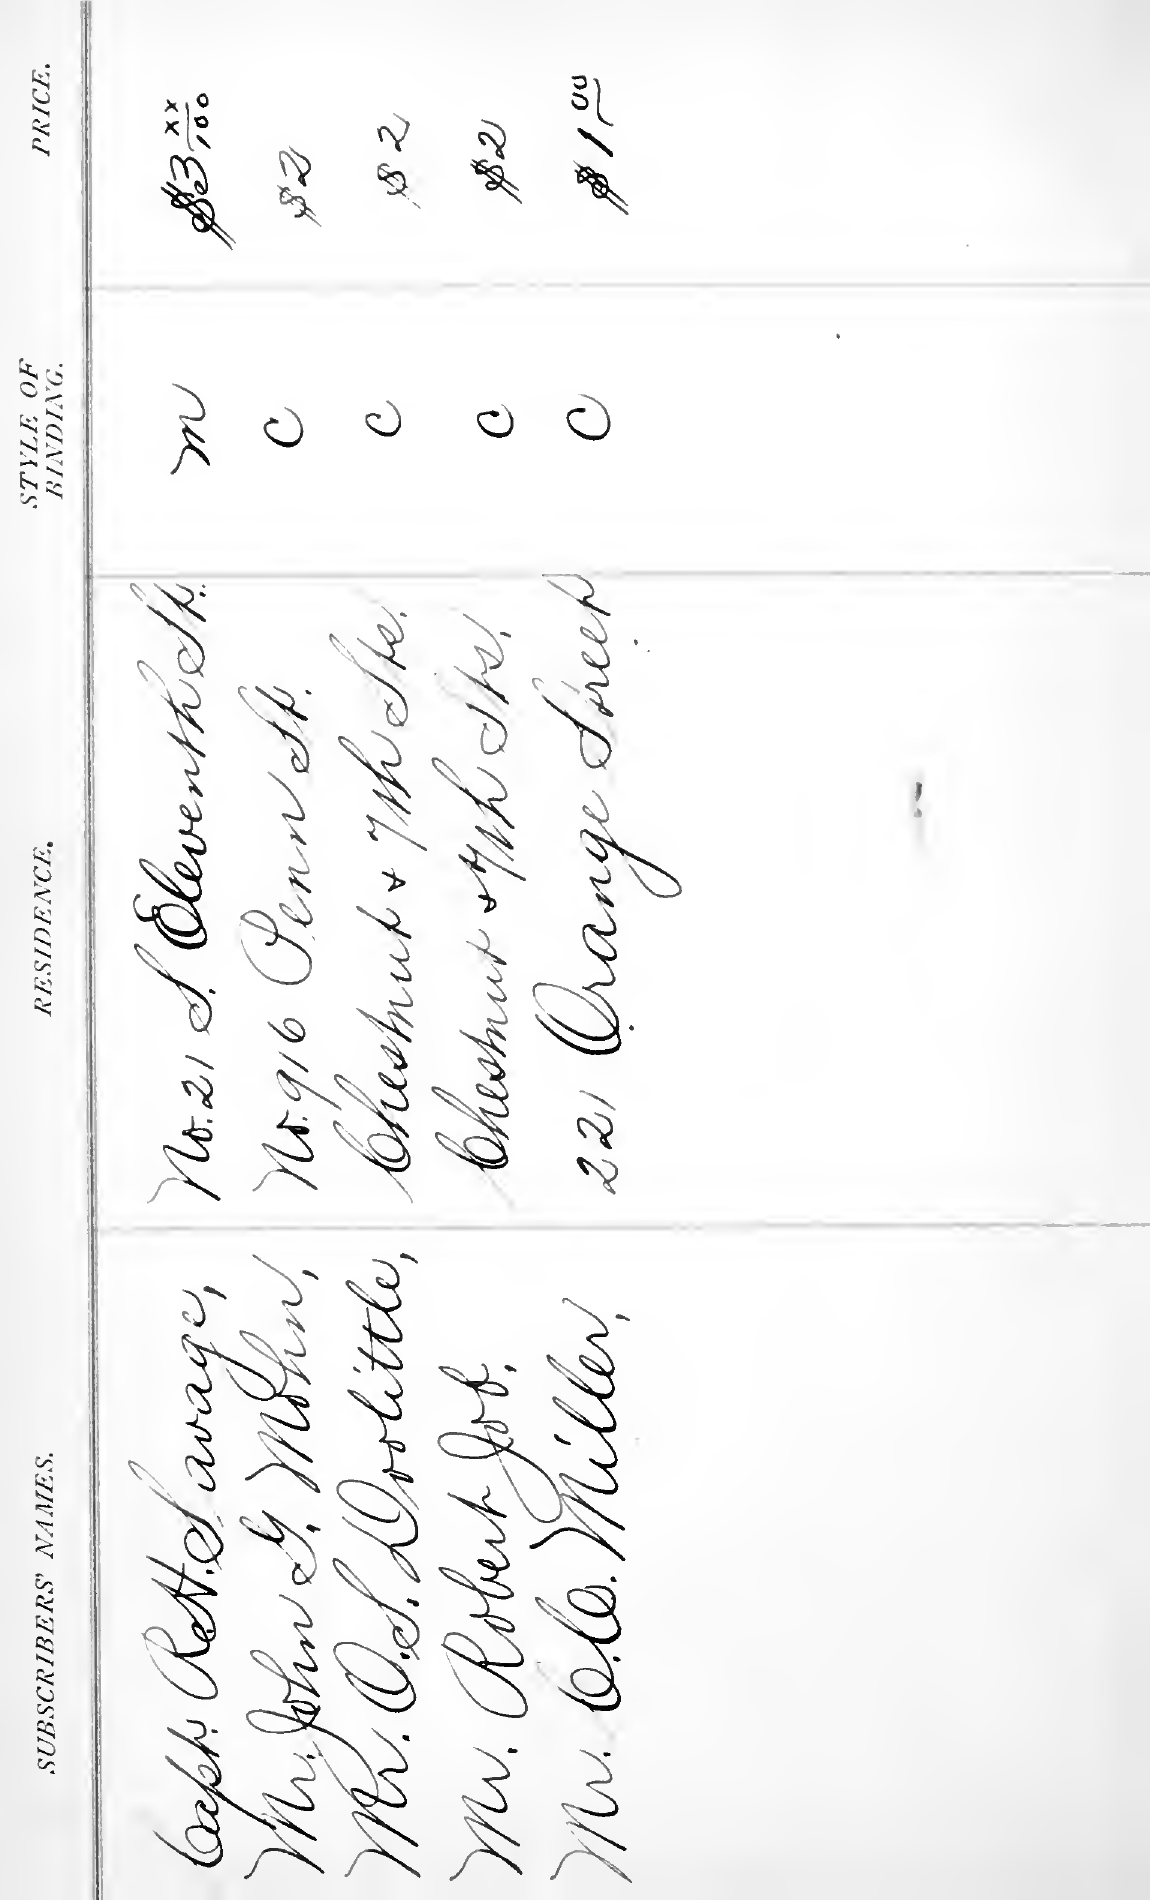 SUBSCRIBERS' NAMES. RESIDENCE. STYLE OF BINDING. PRICE.
Capt. R.H. Savage, No. 21 S. Eleventh St. M $3 xx/100
Mr. John G. Mohn, No. 916 Penn St. C $2
Mr. O.S. Doolittle, Chestnut & 7th Sts. C $2
Mr. Robert Job. Chestnut & 7th Sts. C $2
Mr. C.C. Miller, 221 Orange Street C $1 00